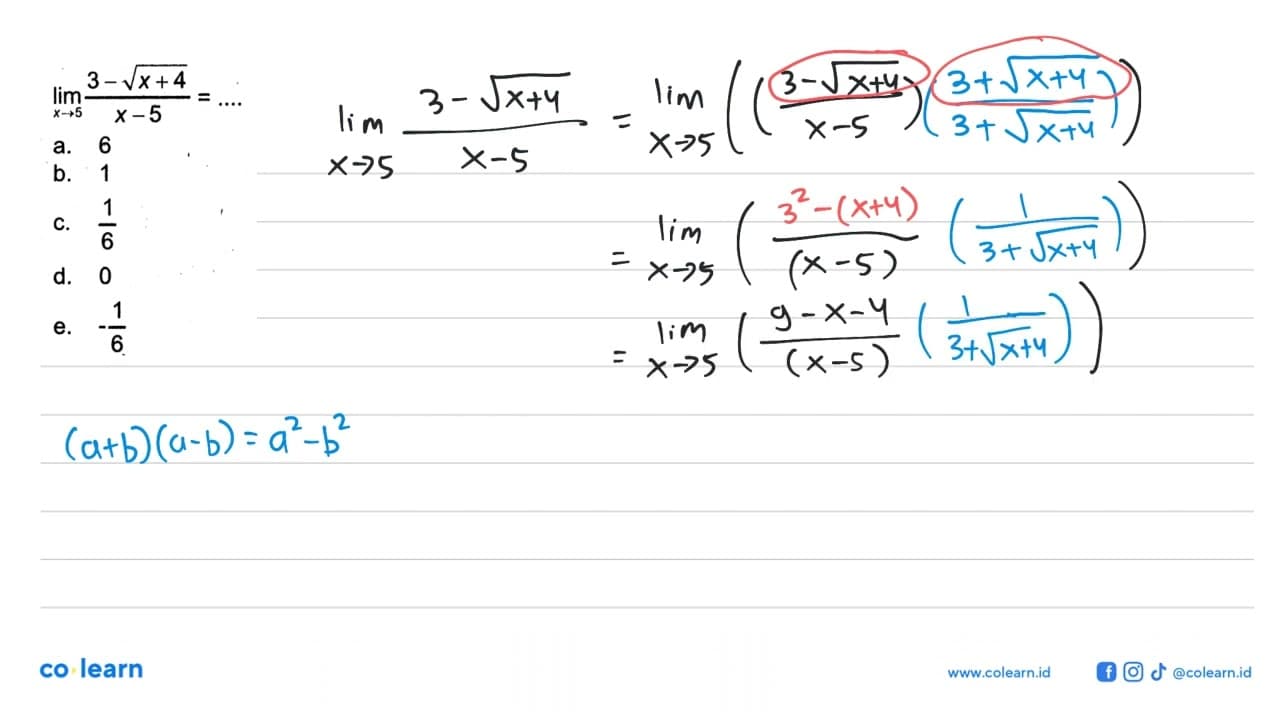 lim x→5 (3 − √(x + 4))/(x − 5) = ....
a. 6
b. 1
c. 1/6
d. 0
e. -1/6
lim x→5 (3 − √(x+4))/(x−5) = lim x→5 (((3 − √(x+4))/(x−5)) ((3 + √(x+4))/(3 + √(x+4))))
= lim x→5 ((3² − (x+4))/(x−5) (1/(3 + √(x+4))))
= lim x→5 ((9 − x − 4)/(x−5) (1/(3 + √(x+4))))
(a+b)(a-b) = a² − b²
co learn
www.colearn.id
@colearn.id